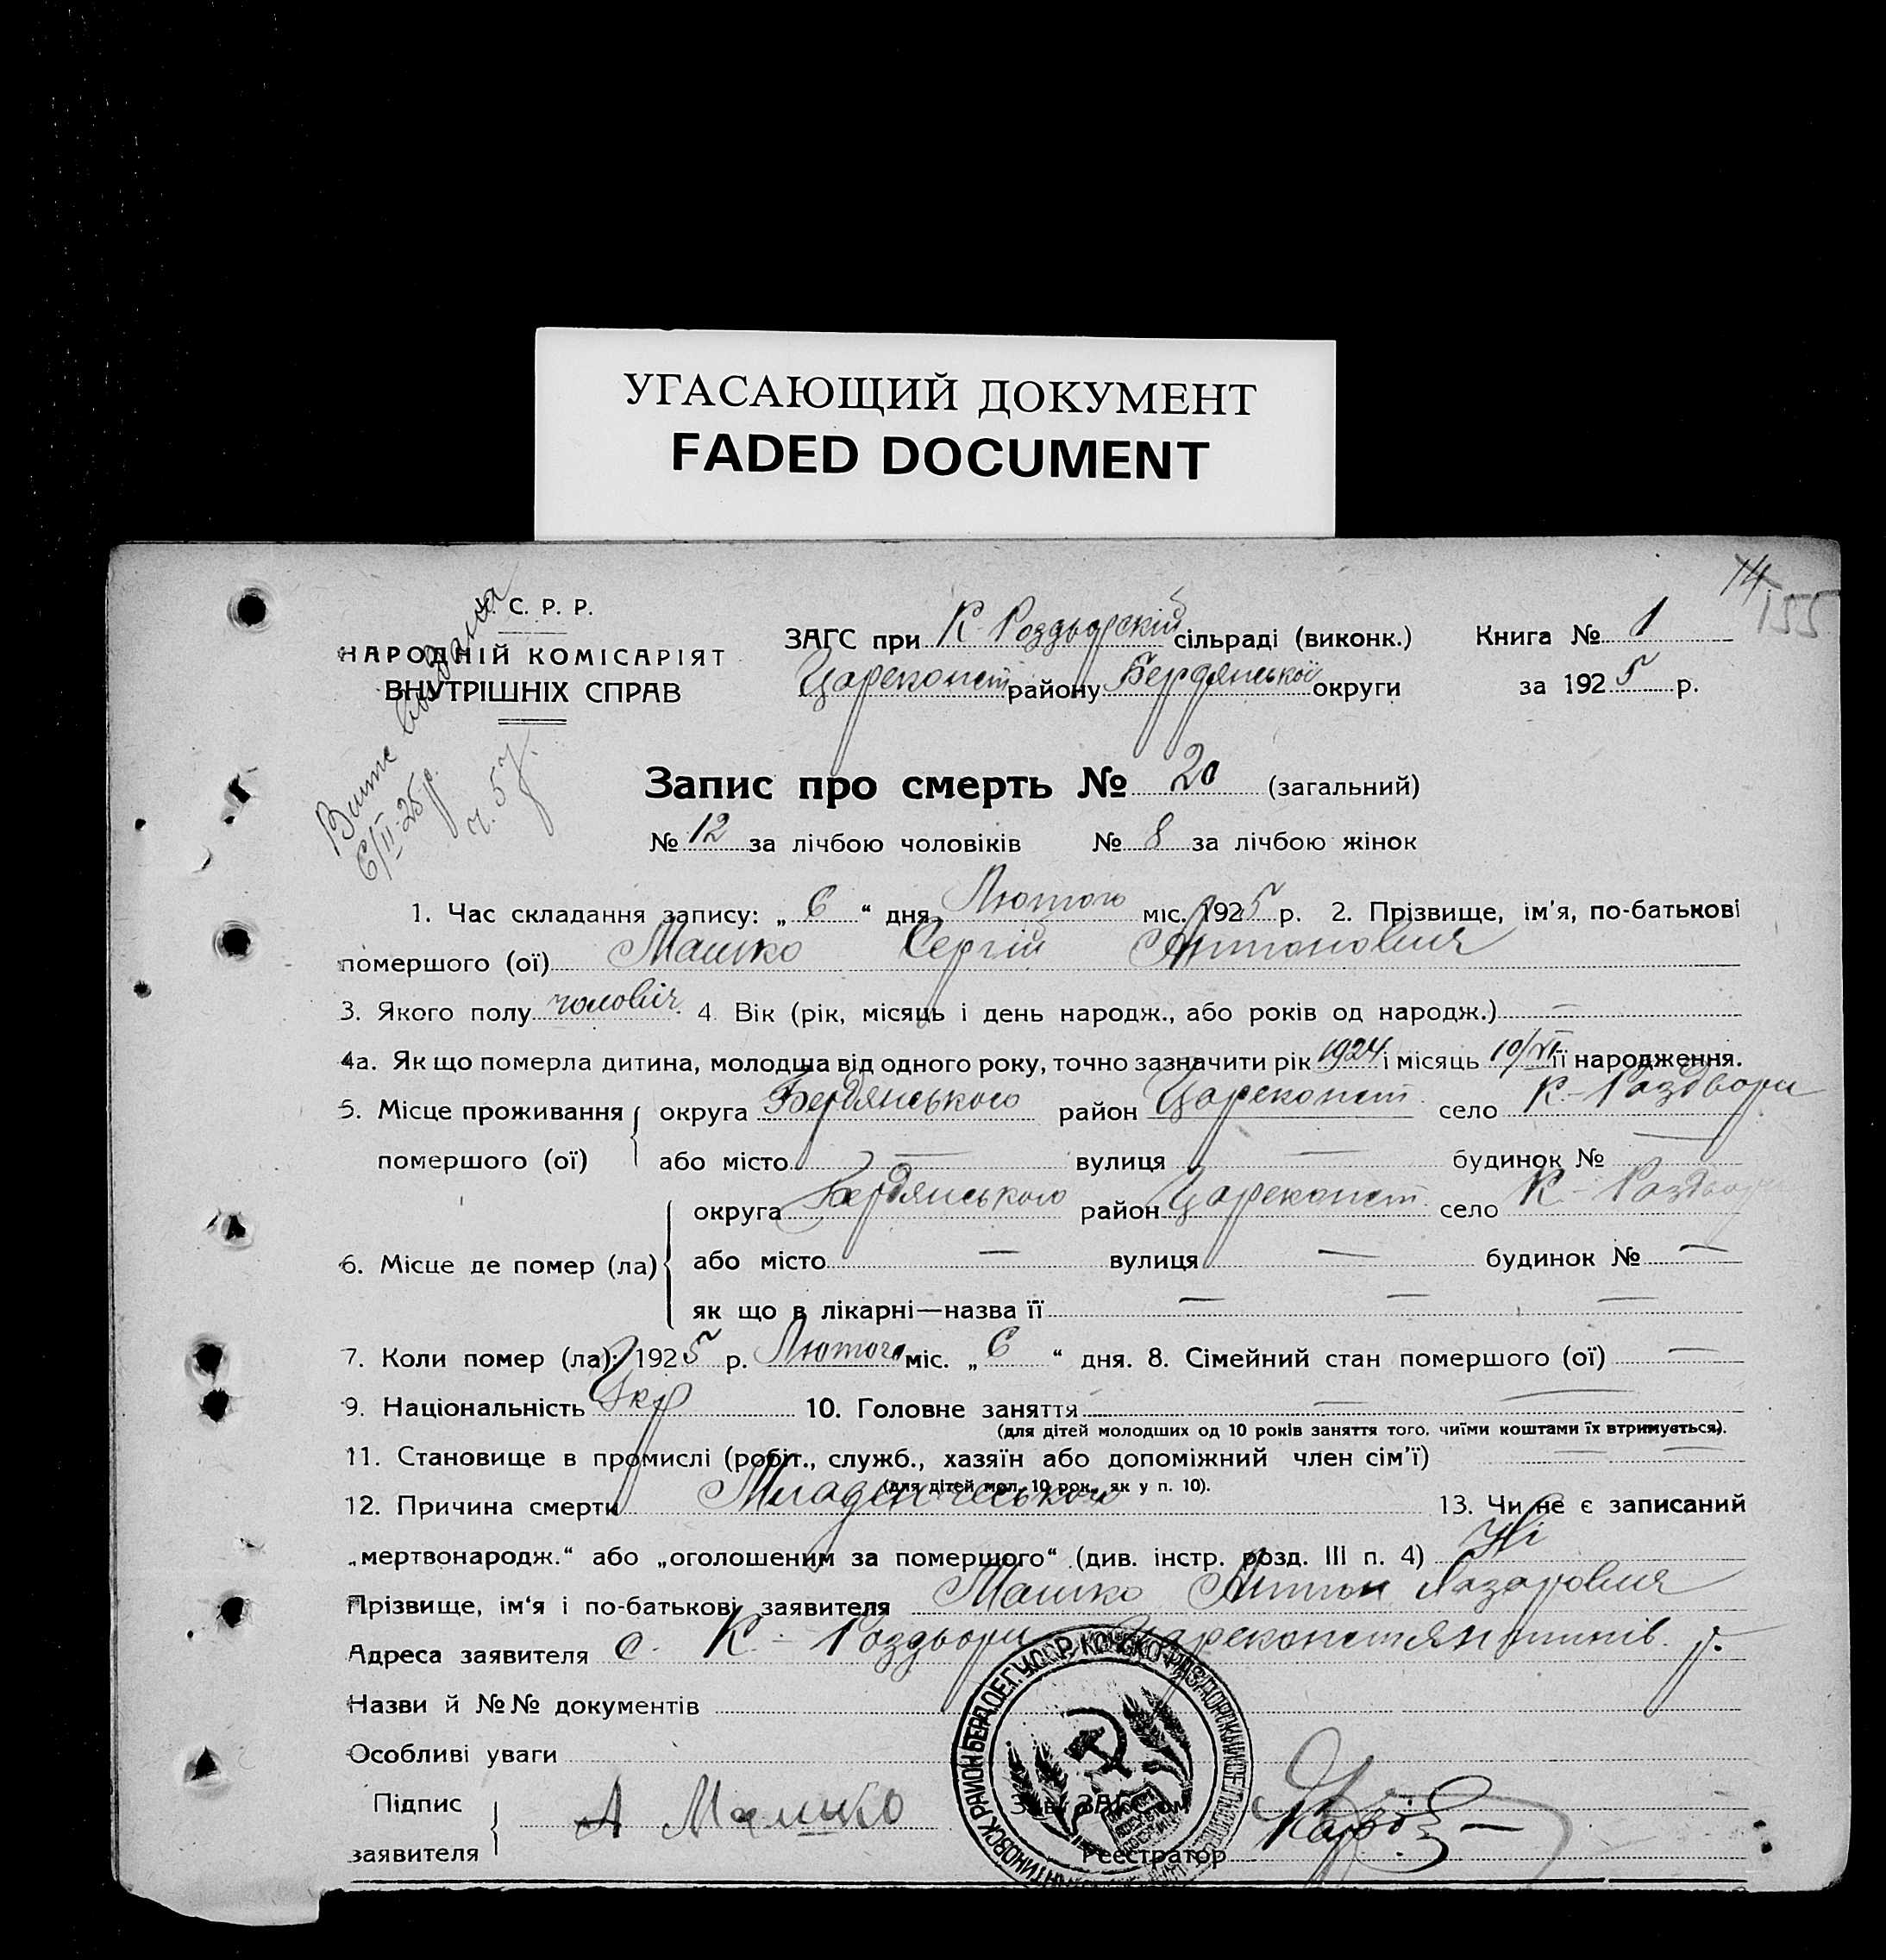 УГАСАЮЩИЙ ДОКУМЕНТ
FADED DOCUMENT
14 155
У. С. Р. Р.
НАРОДНІЙ КОМІСАРІЯТ
ВНУТРІШНІХ СПРАВ
6/II-25р.
ч. 57.
ЗАГС при К-Роздорскій сільраді (виконк.) Книга № 1
Царекопст району Бердянської округи за 1925 р.
Запис про смерть № 20 (загальний)
№ 12 за лічбою чоловіків № 8 за лічбою жінок
1. Час складання запису: „ 6 “ дня Лютого міс. 1925 р. 2. Прізвище, ім'я, по-батькові
помершого (ої) Машко Сергій Антонович
3. Якого полу чоловіч. 4. Вік (рік, місяць і день народж., або років од народж.) —
4а. Як що померла дитина, молодша від одного року, точно зазначити рік 1924 і місяць 10/VI її народження.
5. Місце проживання округа Бердянського район Царекопст. село К-Роздори
помершого (ої) або місто — вулиця — будинок № —
округа Бердянського район Царекопст. село К-Роздори
6. Місце де помер (ла) або місто — вулиця — будинок № —
як що в лікарні—назва її — — —
7. Коли помер (ла): 1925 р. Лютого міс. „ 6 “ дня. 8. Сімейний стан помершого (ої) —
9. Національність Укр 10. Головне заняття — —
(для дітей молодших од 10 років заняття того, чиїми коштами їх втримується).
11. Становище в промислі (робіт., служб., хазяїн або допоміжний член сім'ї) — —
(для дітей мол. 10 рок., як у п. 10).
12. Причина смерти Младенчеського 13. Чи не є записаний
„мертвонародж.“ або „оголошеним за помершого“ (див. інстр. розд. III п. 4) Ні
Прізвище, ім‘я і по-батькові заявителя Машко Антон Лазарович
Адреса заявителя с. К-Роздори р.
Назви й №№ документів
Особливі уваги
Підпис
заявителя А Машко
Зав. ЗАГС'ом
Реєстратор